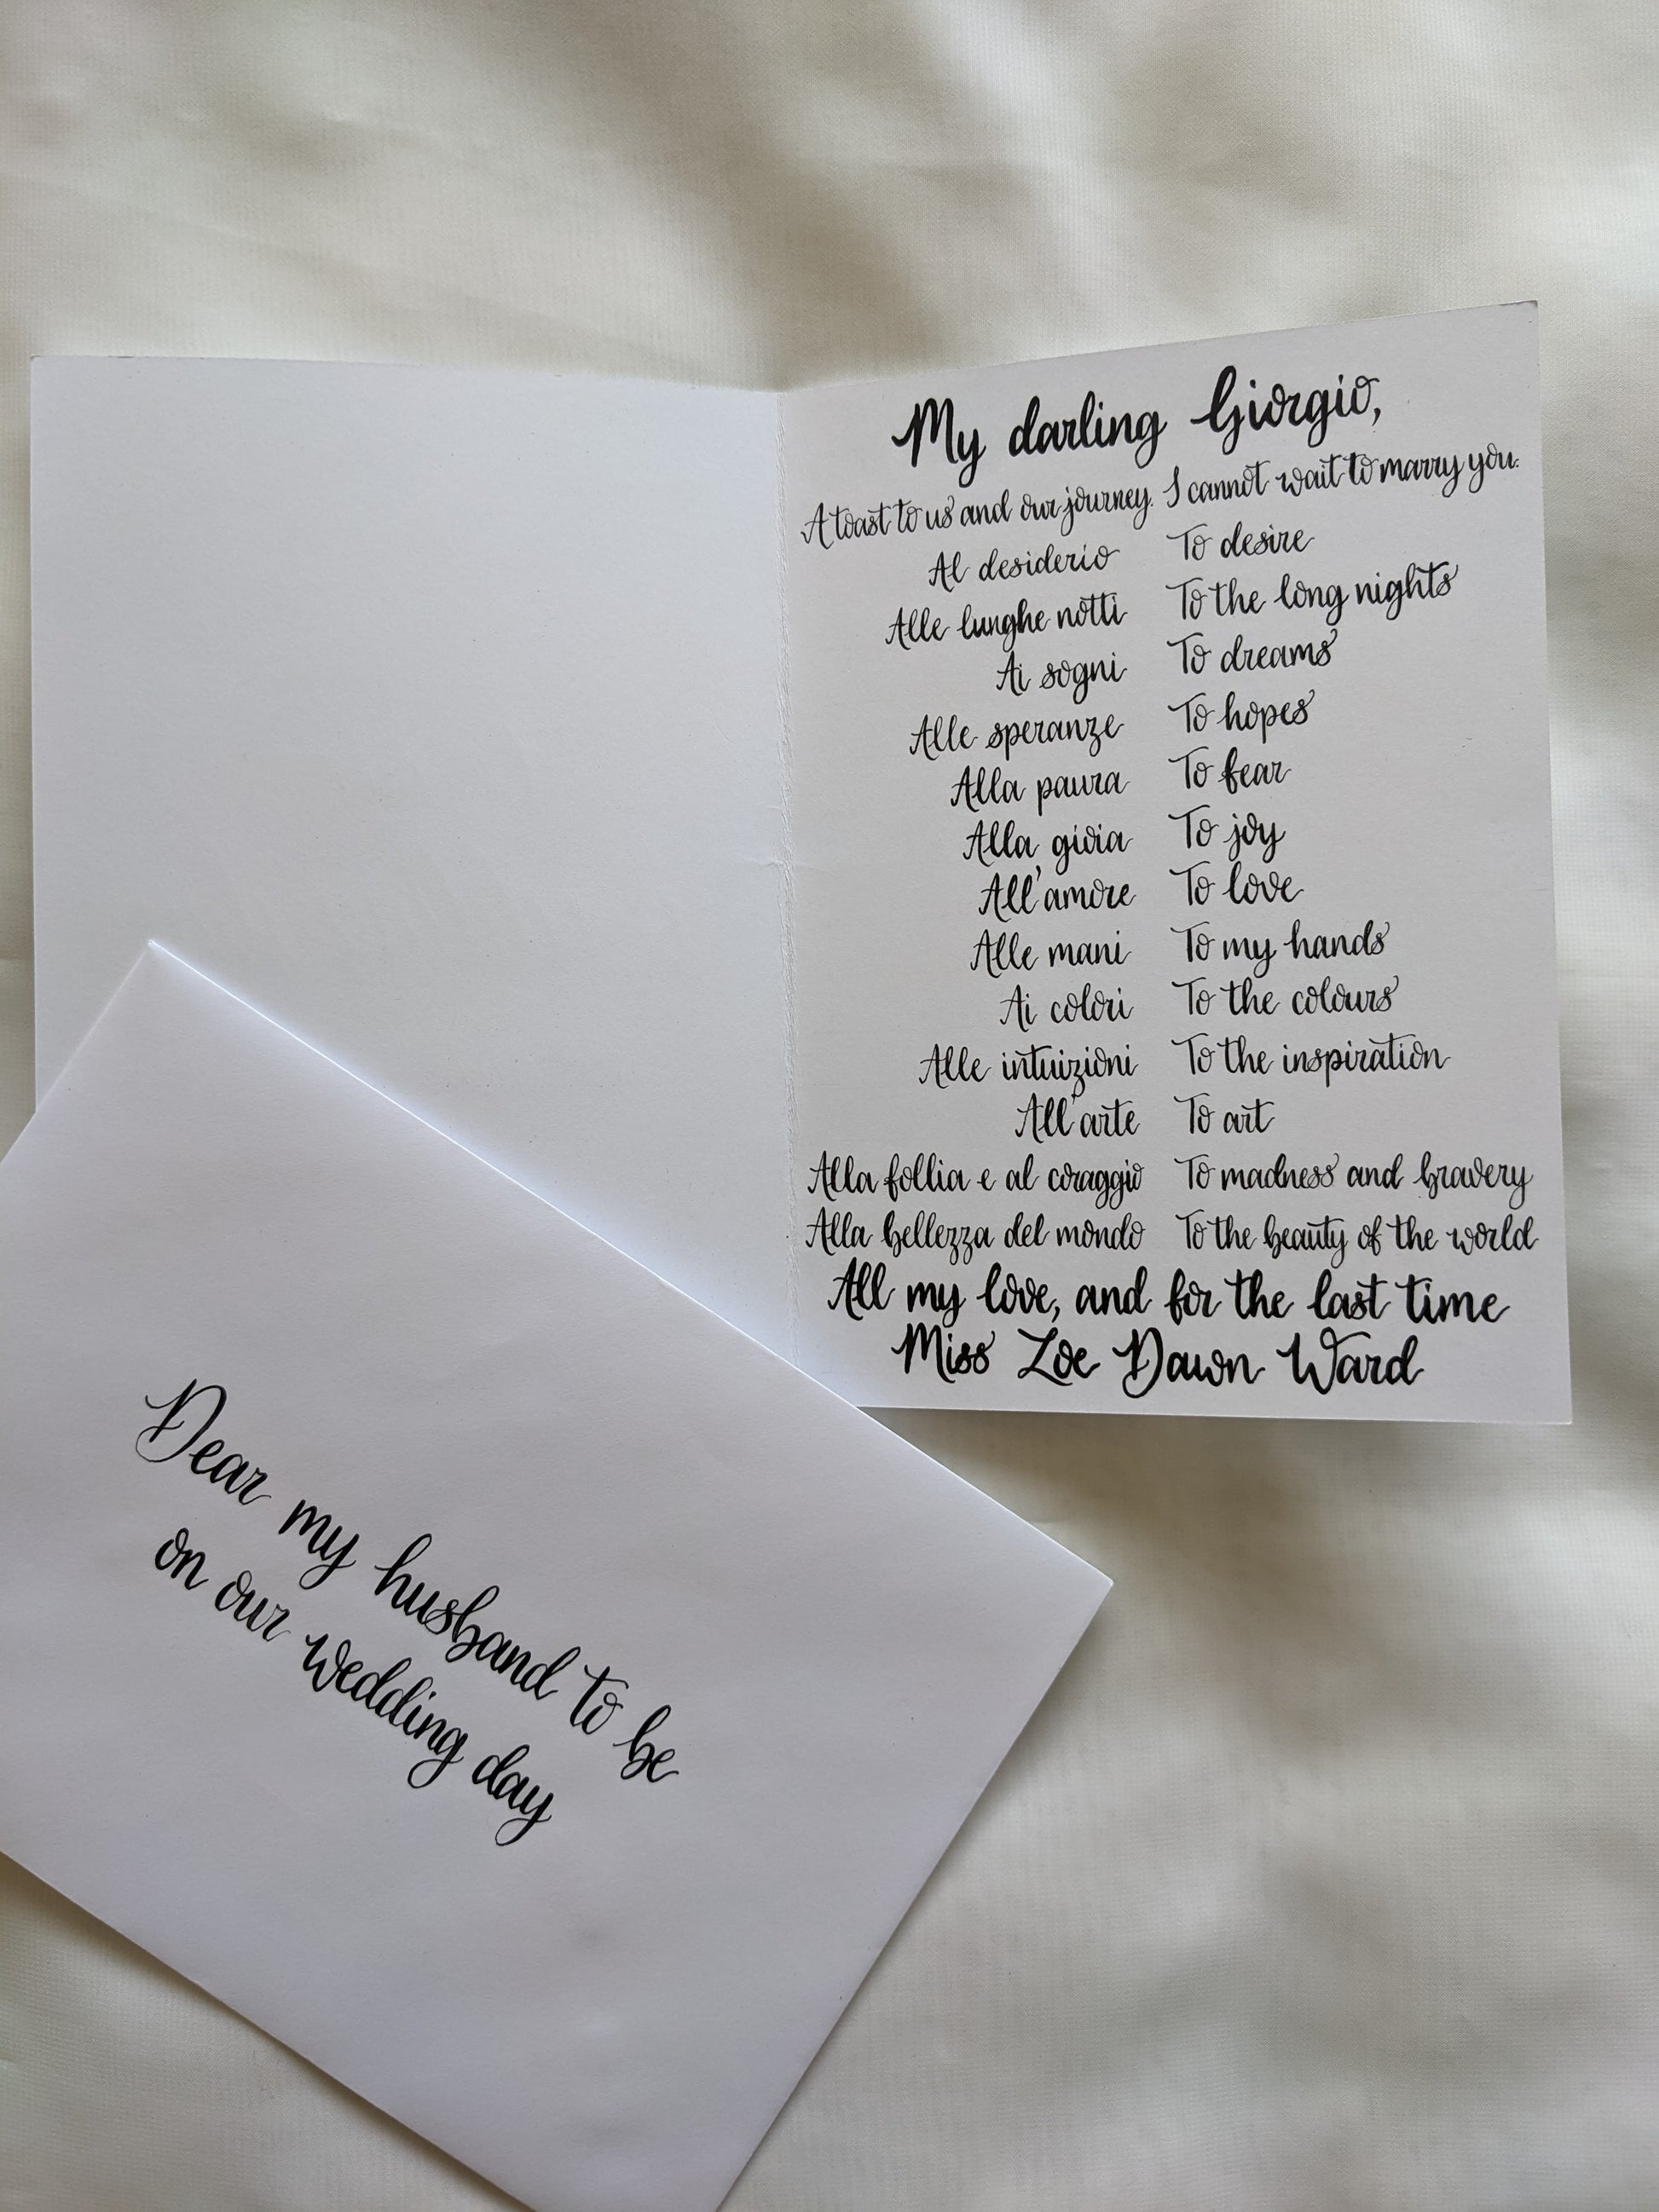 My darling Giorgio,
A toast to us and our journey. I cannot wait to marry you.
Al desiderio To desire
Alle lunghe notti To the long nights
Ai sogni To dreams
Alle speranze To hopes
Alla paura To fear
Alla gioia To joy
All'amore To love
Alle mani To my hands
Ai colori To the colours
Alle intuizioni To the inspiration
All'arte To art
Alla follia e al coraggio To madness and bravery
Alla bellezza del mondo To the beauty of the world
All my love, and for the last time
Miss Zoe Dawn Ward
Dear my husband to be
on our wedding day